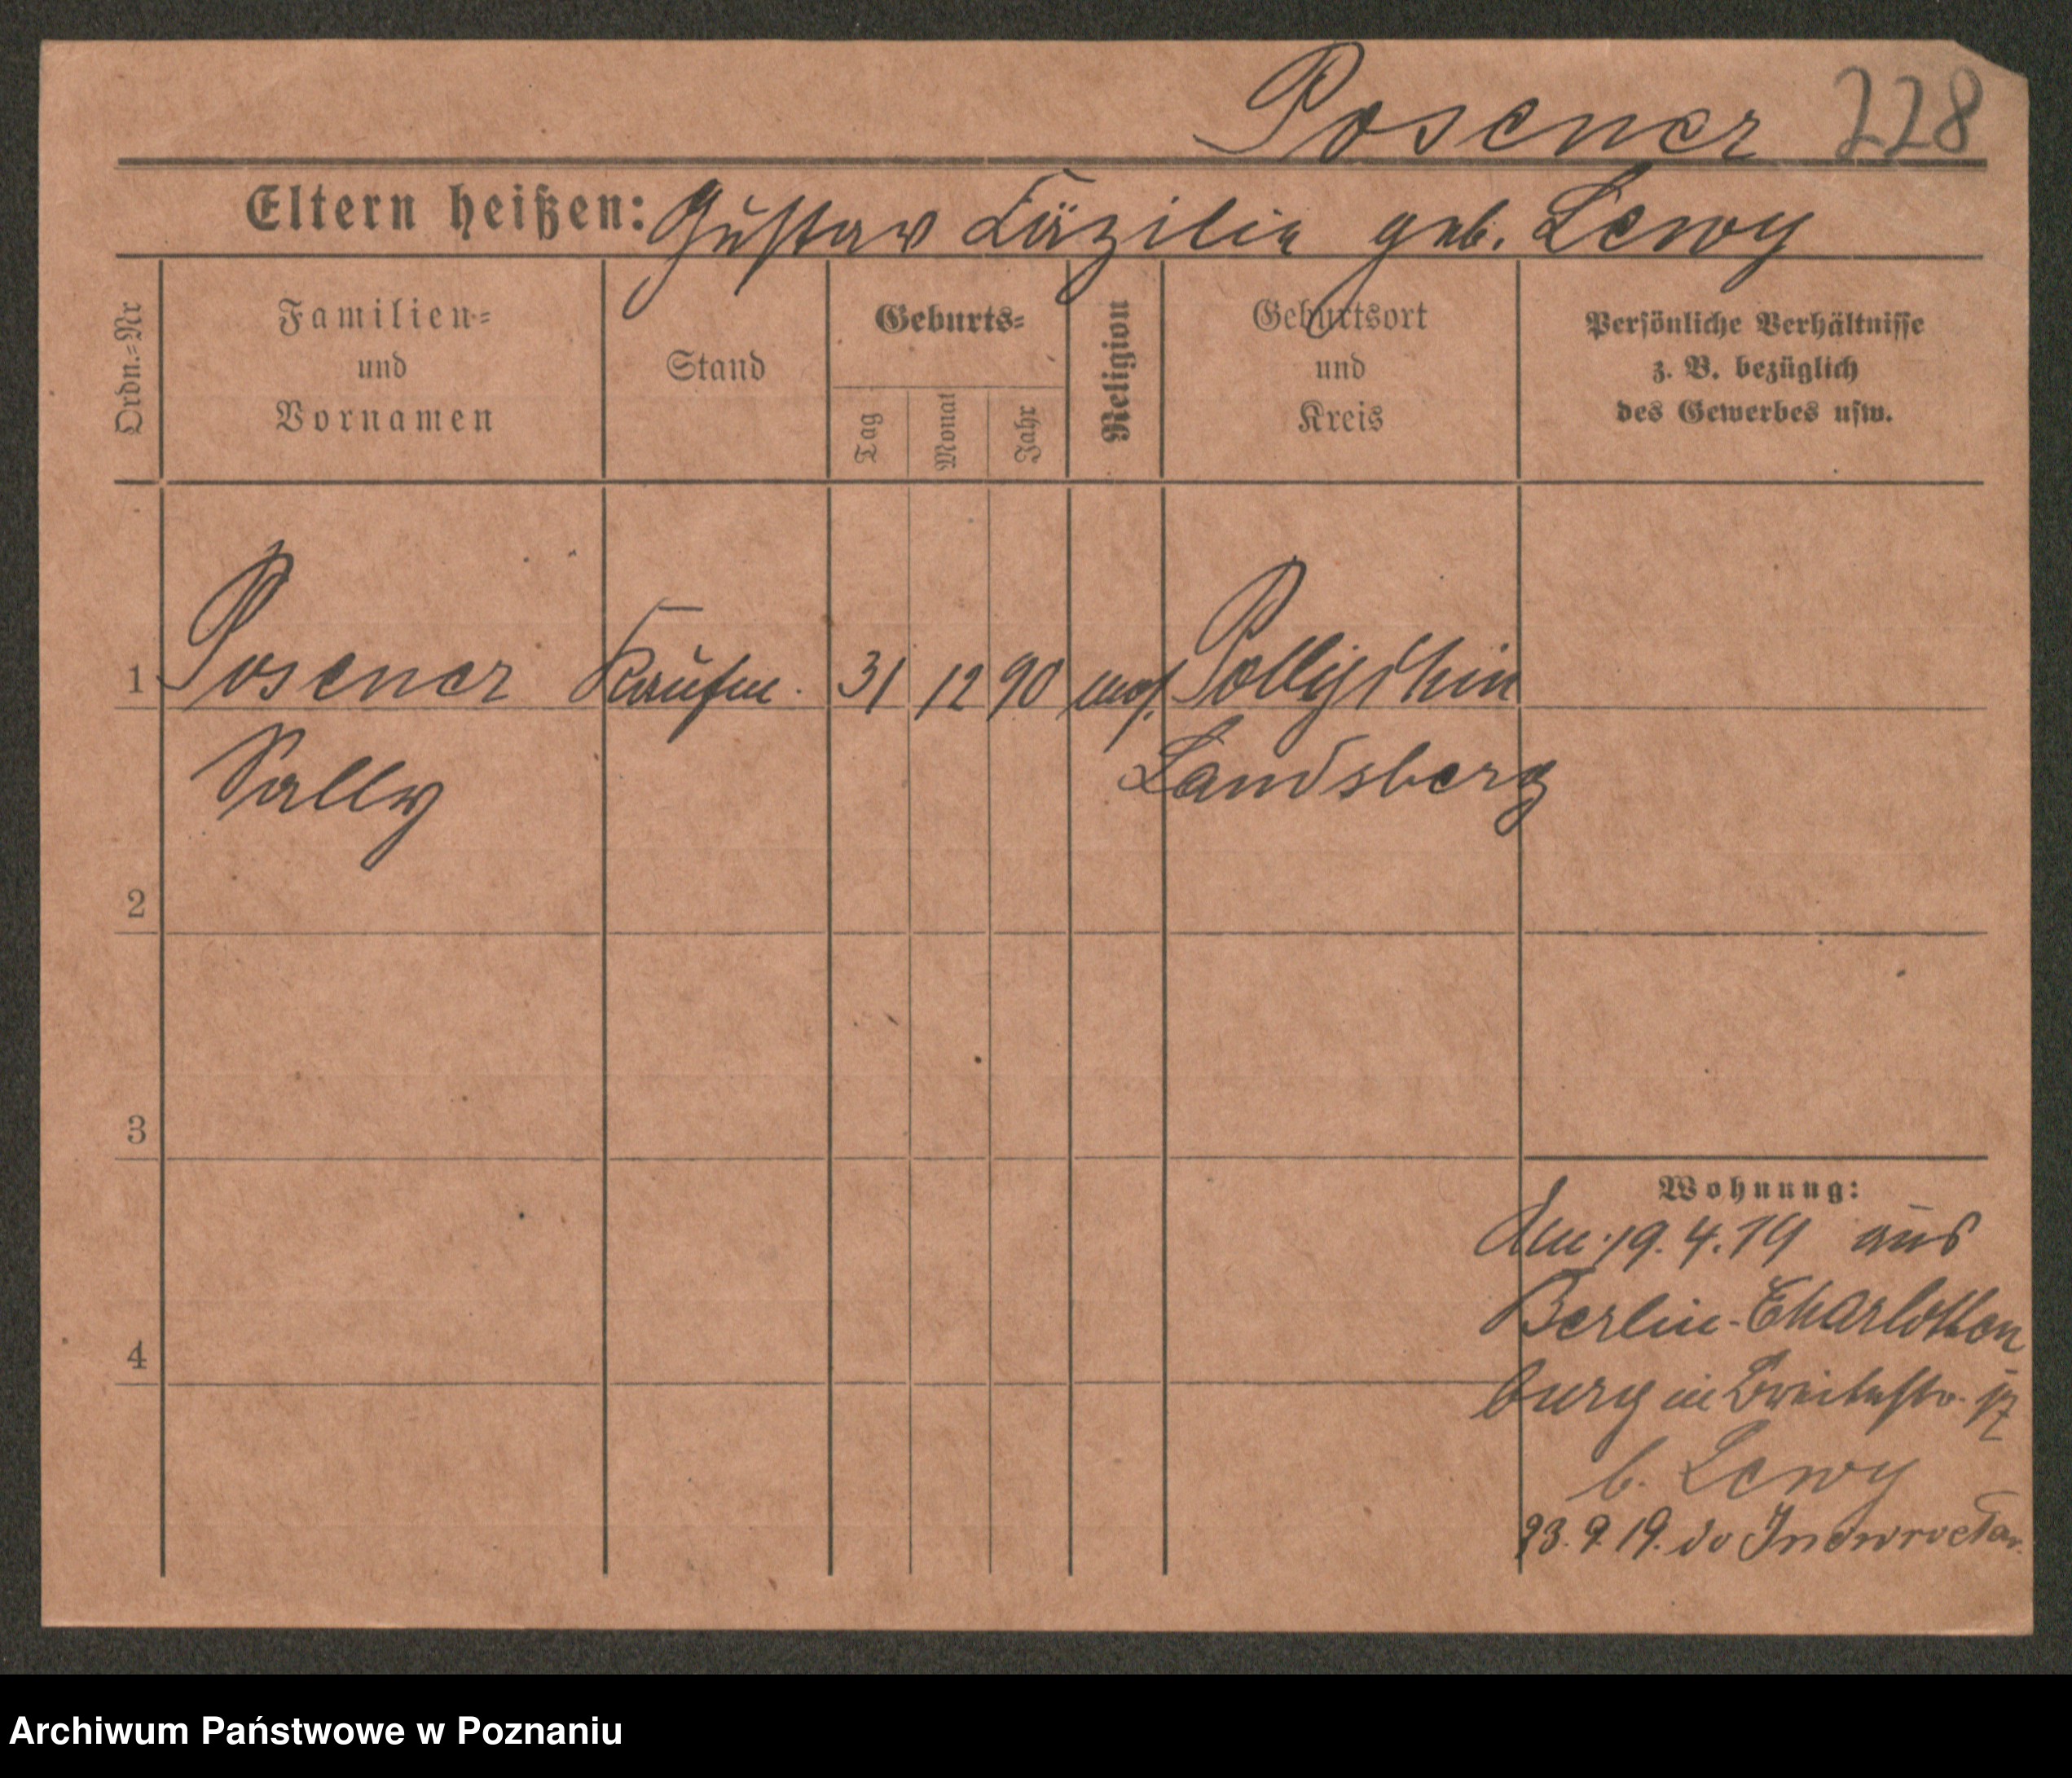 Posener 228
Eltern heißen: Gustav Cäzilie geb. Lewy
Ordn.=Nr
Familien=
und
Vornamen
Stand
Geburts=
Tag
Monat
Jahr
Religion
Geburtsort
und
Kreis
Persönliche Verhältnisse
z. B. bezüglich
des Gewerbes usw.
1 Posener Kaufm. 31 12 90 mos. Pollychin
Sally Landsberg
2
3
4
Wohnung:
den 19.4.19 aus
Berlin-Charlotten
burg in Breitestr.
b. Lewy
23.9.19. do Inowrocław.
Archiwum Państwowe w Poznaniu